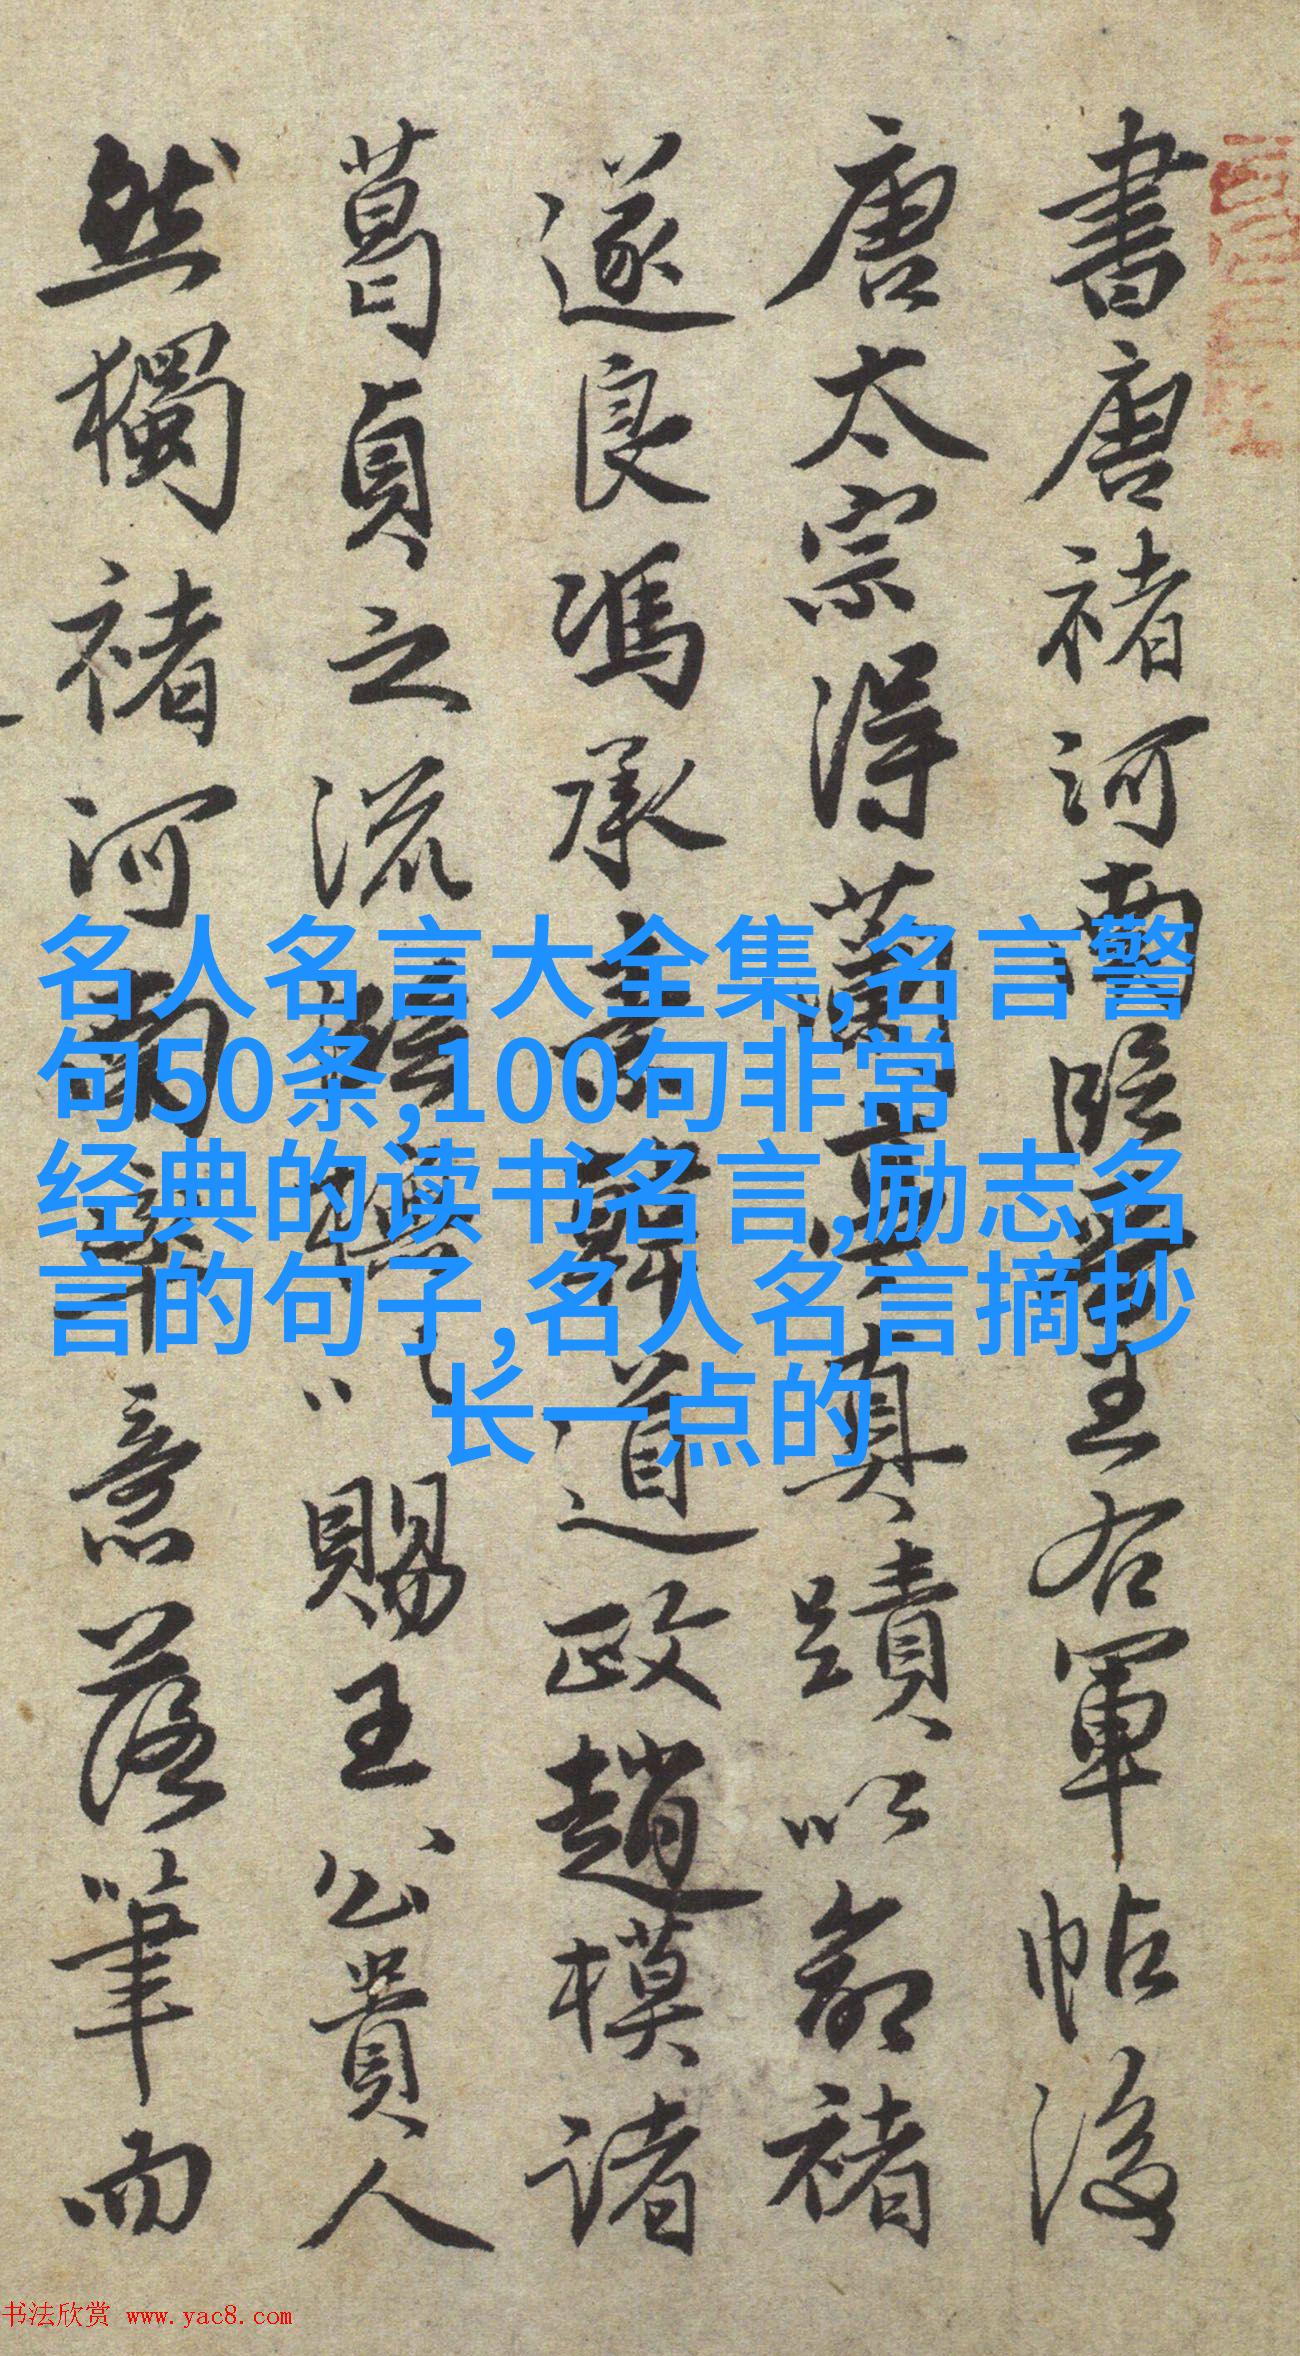 書唐褚河南臨晉王右軍帖後
唐太宗得蘭亭真蹟以命褚
遂良馮承素韓道政趙模諸
葛貞之流臨搨以賜王公貴人
然獨褚河南率意落筆而
名人名言大全集,名言警
句50条,100句非常
经典的读书名言,励志名
言的句子,名人名言摘抄
长一点的
书法欣赏 www.yac8.com